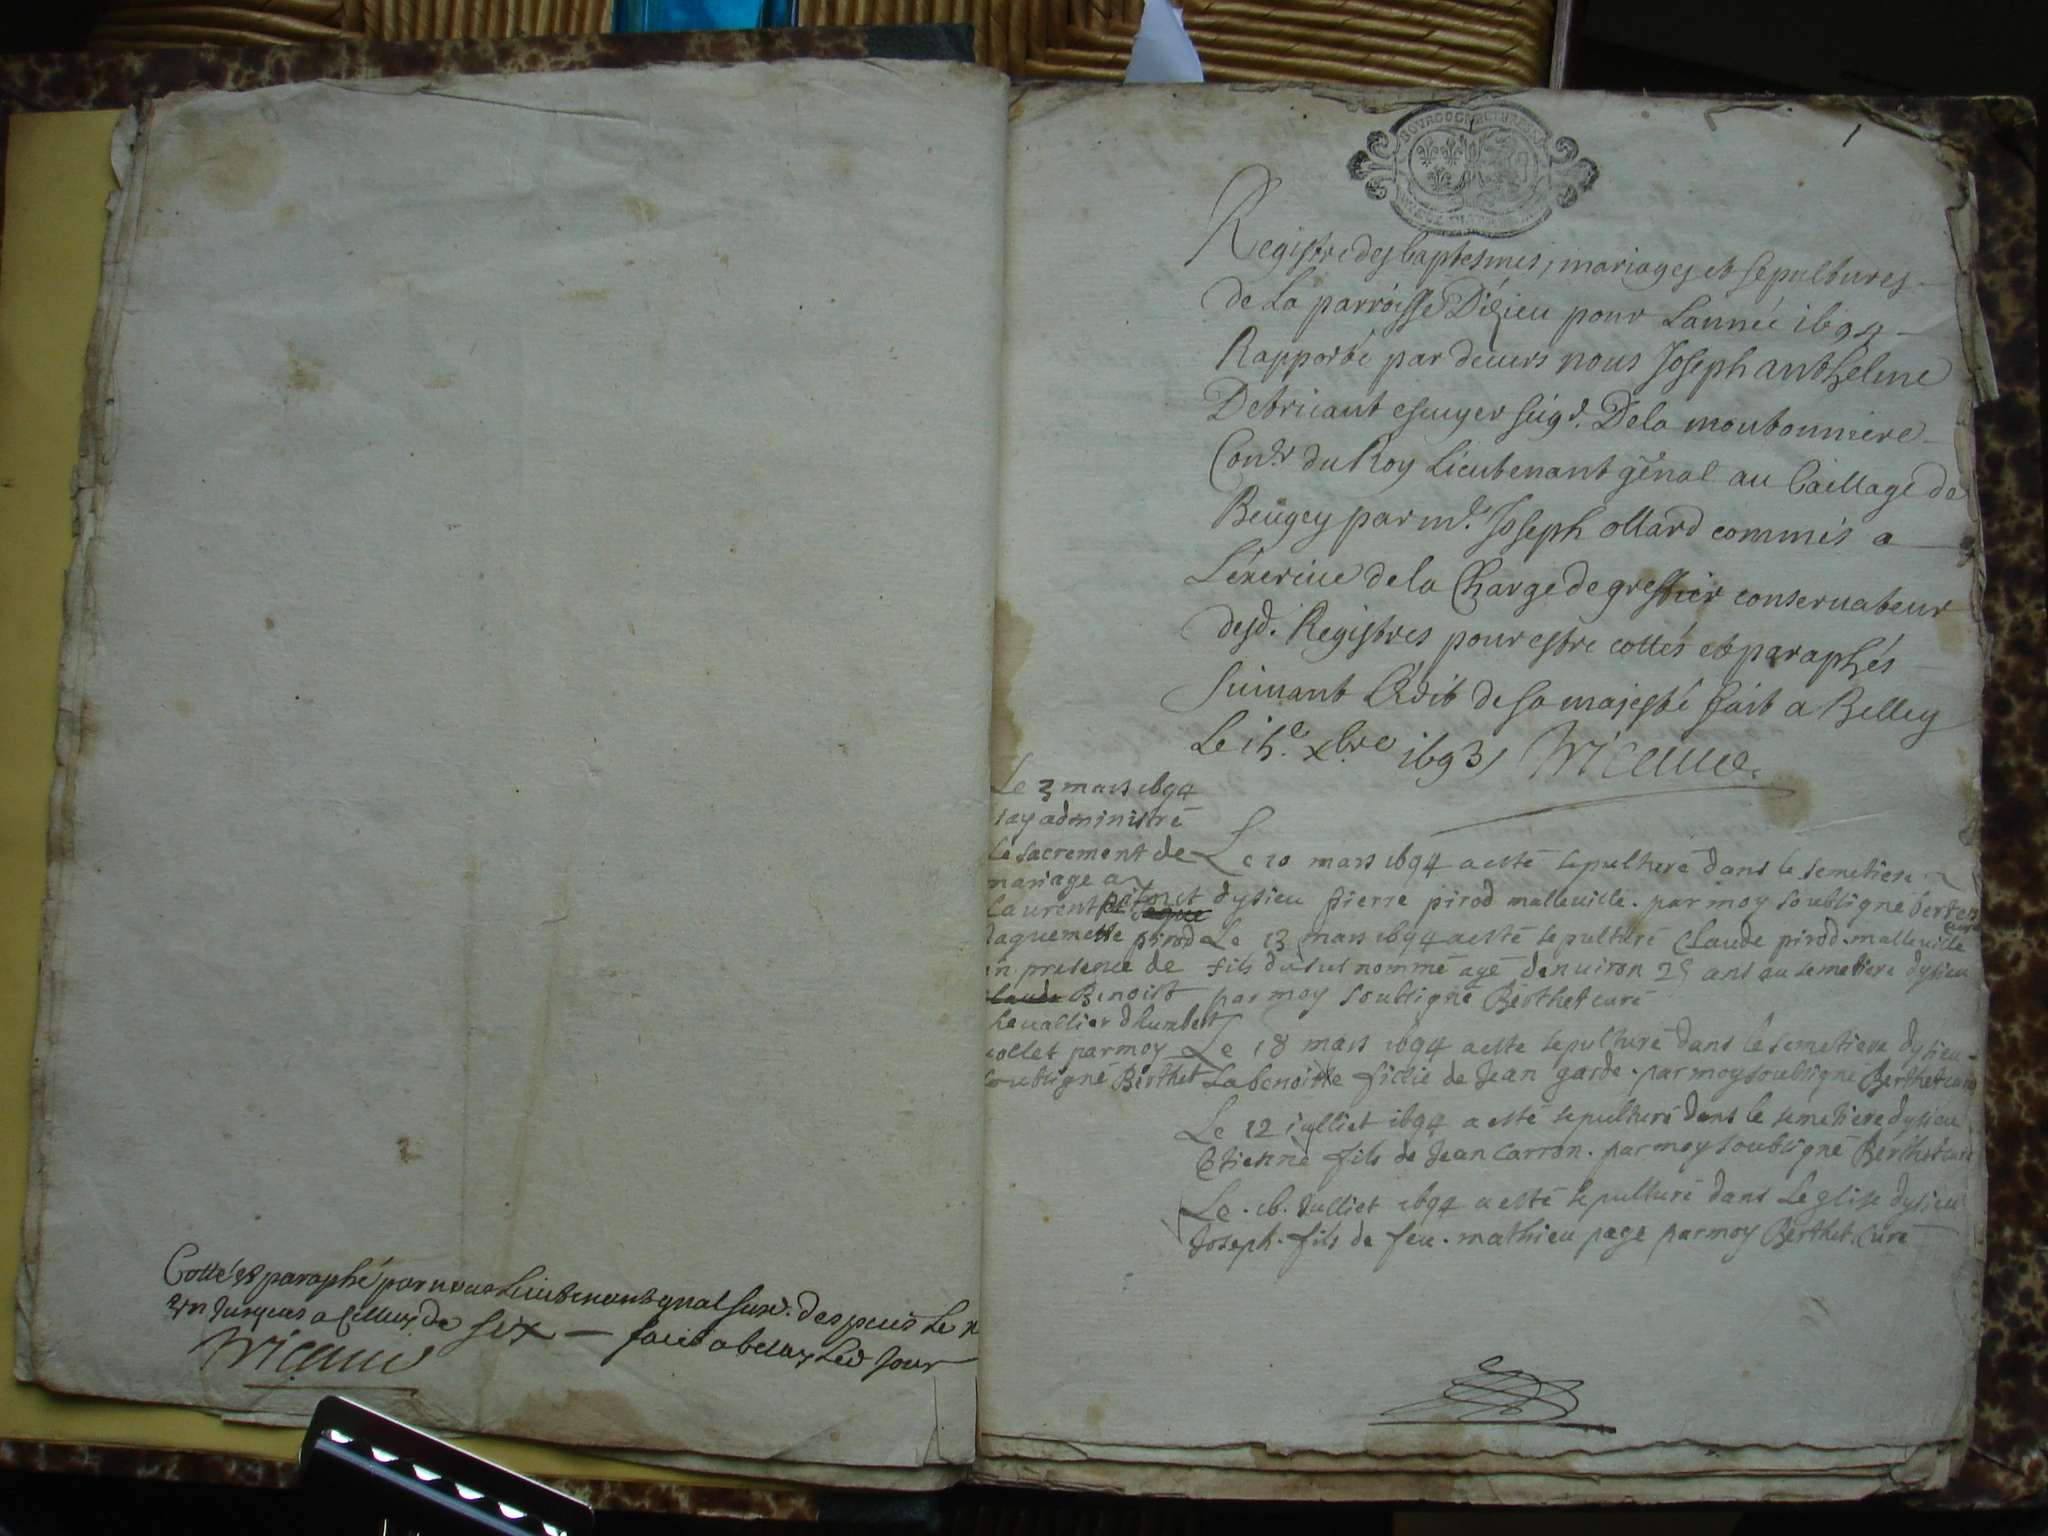 Cotté et paraphé par nous Lieutenant gnal susd. despuis Le
un Jusques a celluy de six — fait a belley Led Jour
Tricaud
1
BOURGOGNE ET BRESSE
Registre des baptesmes, mariages et sepultures
de La parroisse Dizieu pour Lannée 1694
Rapporté par devers nous Joseph anthelme
Detricaut escuyer seigr. Dela moutonniere
Conser du Roy Lieutenant génal au Baillage de
Beugey par me. Joseph ollard commis a
Lexercice de la Charge de greffier conservateur
desd. Registres pour estre cottés et paraphés
suivant Ledit de sa majesté fait a Belley
Le 15e xbre 1693 Tricaud
Le 3 mars 1694
Jay administré
Le sacrement de
mariage a
Laurent peronet
Jaquemette pirod
en presence de
claude Benoist
chevallier dhumbert
collet par moy
soubsigné Berthet
Le 10 mars 1694 a esté sepulturé dans le semetiere
dysieu pierre pirod malleville. par moy soubsigne berthet curé
Le 13 mars 1694 a esté sepulturé Claude pirod malleville
fils du sus nommé agé denviron 25 ans au semetiere dysieu
par moy soubsigné Berthet curé
Le 18 mars 1694 a esté sepulturé dans le semetiere dysieu
La benoitte fillie de Jean garde. par moy soubsigne Berthet curé
Le 12 julliet 1694 a esté sepulturé dans le semetiere dysieu
Etienne fils de Jean Carron. par moy soubsigné Berthet curé
Le . 16. Julliet 1694 a esté sepulturé dans Leglise dysieu
Joseph. fils de feu. mathieu page par moy Berthet Curé